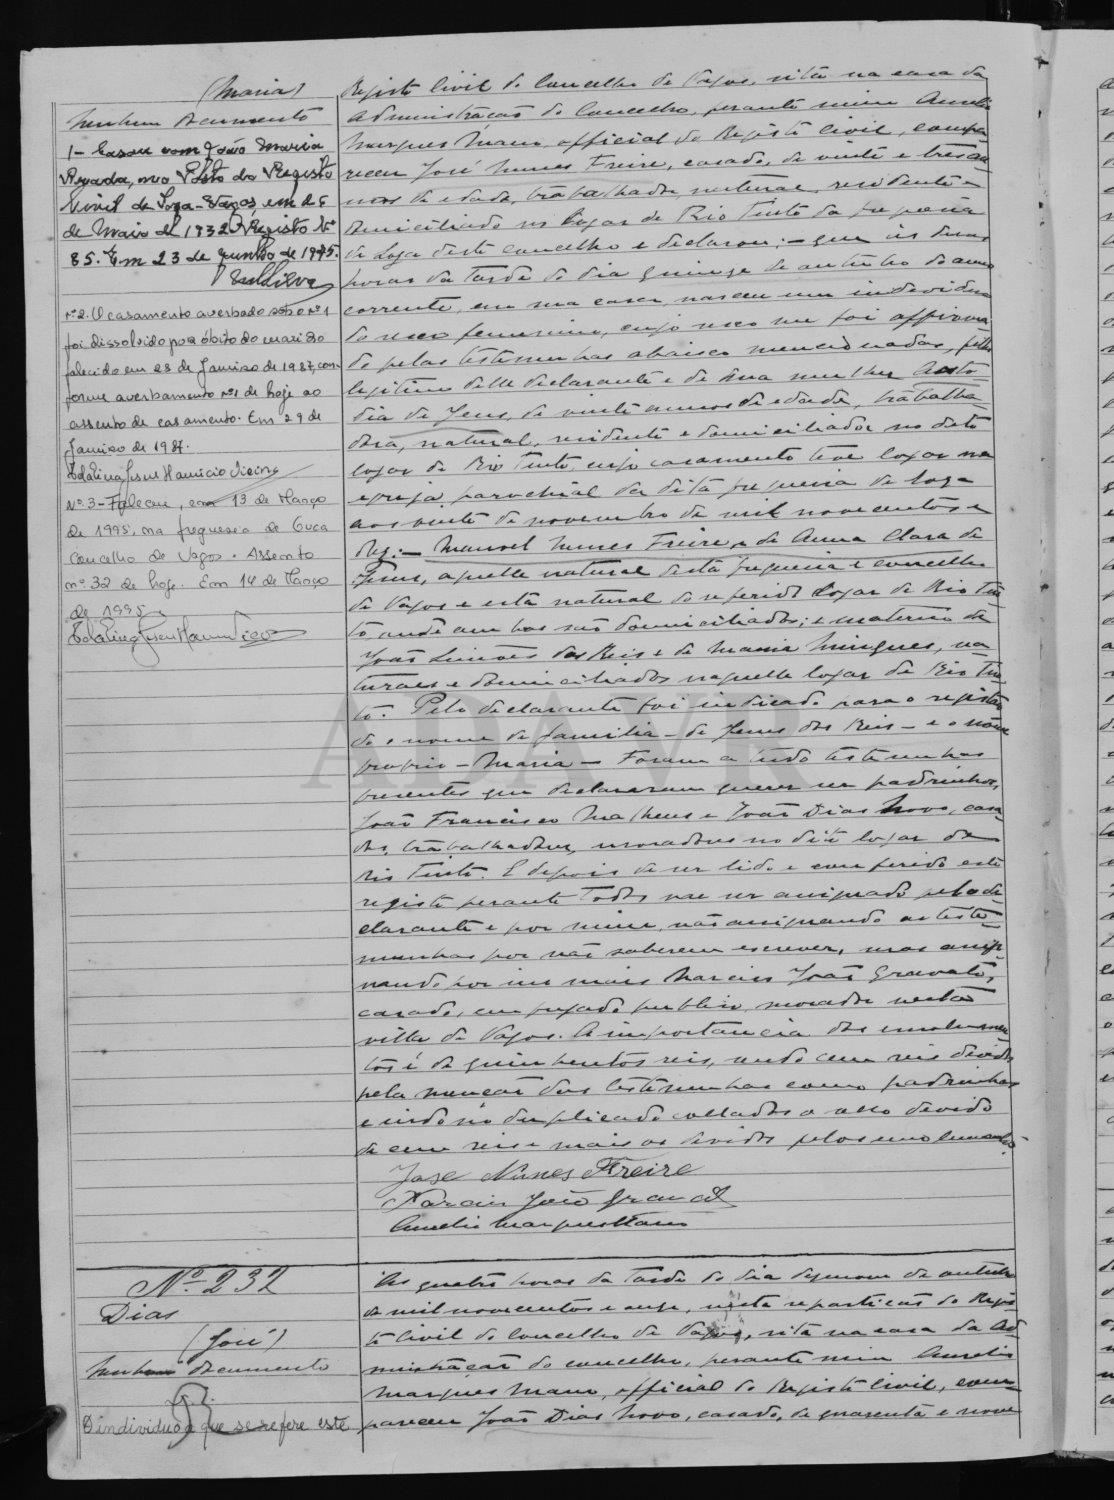 (Maria)
Nenhum documento
1- Casou com João Maria
no Posto do Registo
Civil de Soza-Vagos em 25
de Maio de 1932. Registo Nº
85. Em 23 de Junho de 1975.
Nº2. O casamento averbado sob o nº1
foi dissolvido por óbito do marido
falecido em 28 de Janeiro de 1987, con-
forme averbamento nº1 de hoje ao
assento de casamento. Em 29 de
Janeiro de 1987.
Nº3-Faleceu, em 13 de Março
de 1995, na freguesia de Ouca
Concelho de Vagos. Assento
nº 32 de hoje. Em 14 de Março
de 1995
Registo Civil do Concelho de Vagos, sita na casa da
Administração do Concelho, perante mim Aurelio
Marques Mano, official do Registo Civil, compa-
receu José Nunes Freire, casado, de vinte e tres an-
nos de edade, trabalhador, natural, residente e
domiciliado no logar de Rio Tinto da freguesia
de Soza deste concelho e declarou:- que ás duas
horas da tarde do dia quinze de outubro do anno
corrente, em sua casa, nasceu um individuo
do sexo femenino, cujo sexo me foi affirma-
do pelas testemunhas abaixo mencionadas, filha
legitima delle declarante e de sua mulher Custo-
dia de Jesus, de vinte annos de edade, trabalha-
dora, natural, residente e domiciliada no dito
logar de Rio Tinto, cujo casamento teve logar na
egreja parochial da dita freguesia de Soza
aos vinte de novembro de mil novecentos e
dez:- Manoel Nunes Freire, e de Anna Clara de
Jesus, aquelle natural desta freguesia e concelho
de Vagos e esta natural do referido logar de Rio Tin-
to, onde ambos são domiciliados; e materna de
João Simões dos Reis e de Maria Mingues, na-
turaes e domiciliados naquelle logar de Rio Tin-
to. Pelo declarante foi indicado para o registo
do o nome de familia - de Jesus dos Reis - e o nome
proprio - Maria - Foram a tudo testemunhas
presentes que declararam querer ser padrinhos,
João Francisco Matheus e João Dias Novo, casa-
dos, trabalhadores, moradores no dito logar de
Rio Tinto. E depois de ser lido e conferido este
registo perante todos vae ser assignado pelo de-
clarante e por mim, não assignando as teste-
munhas por não saberem escrever, mas assig-
nando por ... mais Narciso João Gravato,
casado, empregado publico, morador nesta
villa de Vagos. A importancia dos emolumen-
tos é de quinhentos reis, sendo cem reis devidos
pela menção das testemunhas como padrinhos
e sendo no duplicado collados o sello devido
de cem reis e mais os devidos pelos emolumentos.
José Nunes Freire
Narciso João Gravato
Aurelio Marques Mano
Nº 232
Dias
(José)
Nenhum documento
O individuo a que se refere este
Ás quatro horas da tarde do dia dezenove de outubro
de mil novecentos e onze, nesta repartição do Regis-
to Civil do Concelho de Vagos, sita na casa da Ad-
ministração do concelho, perante mim Aurelio
Marques Mano, official do Registo Civil, com-
pareceu João Dias Novo, casado, de quarenta e nove
ADAVR